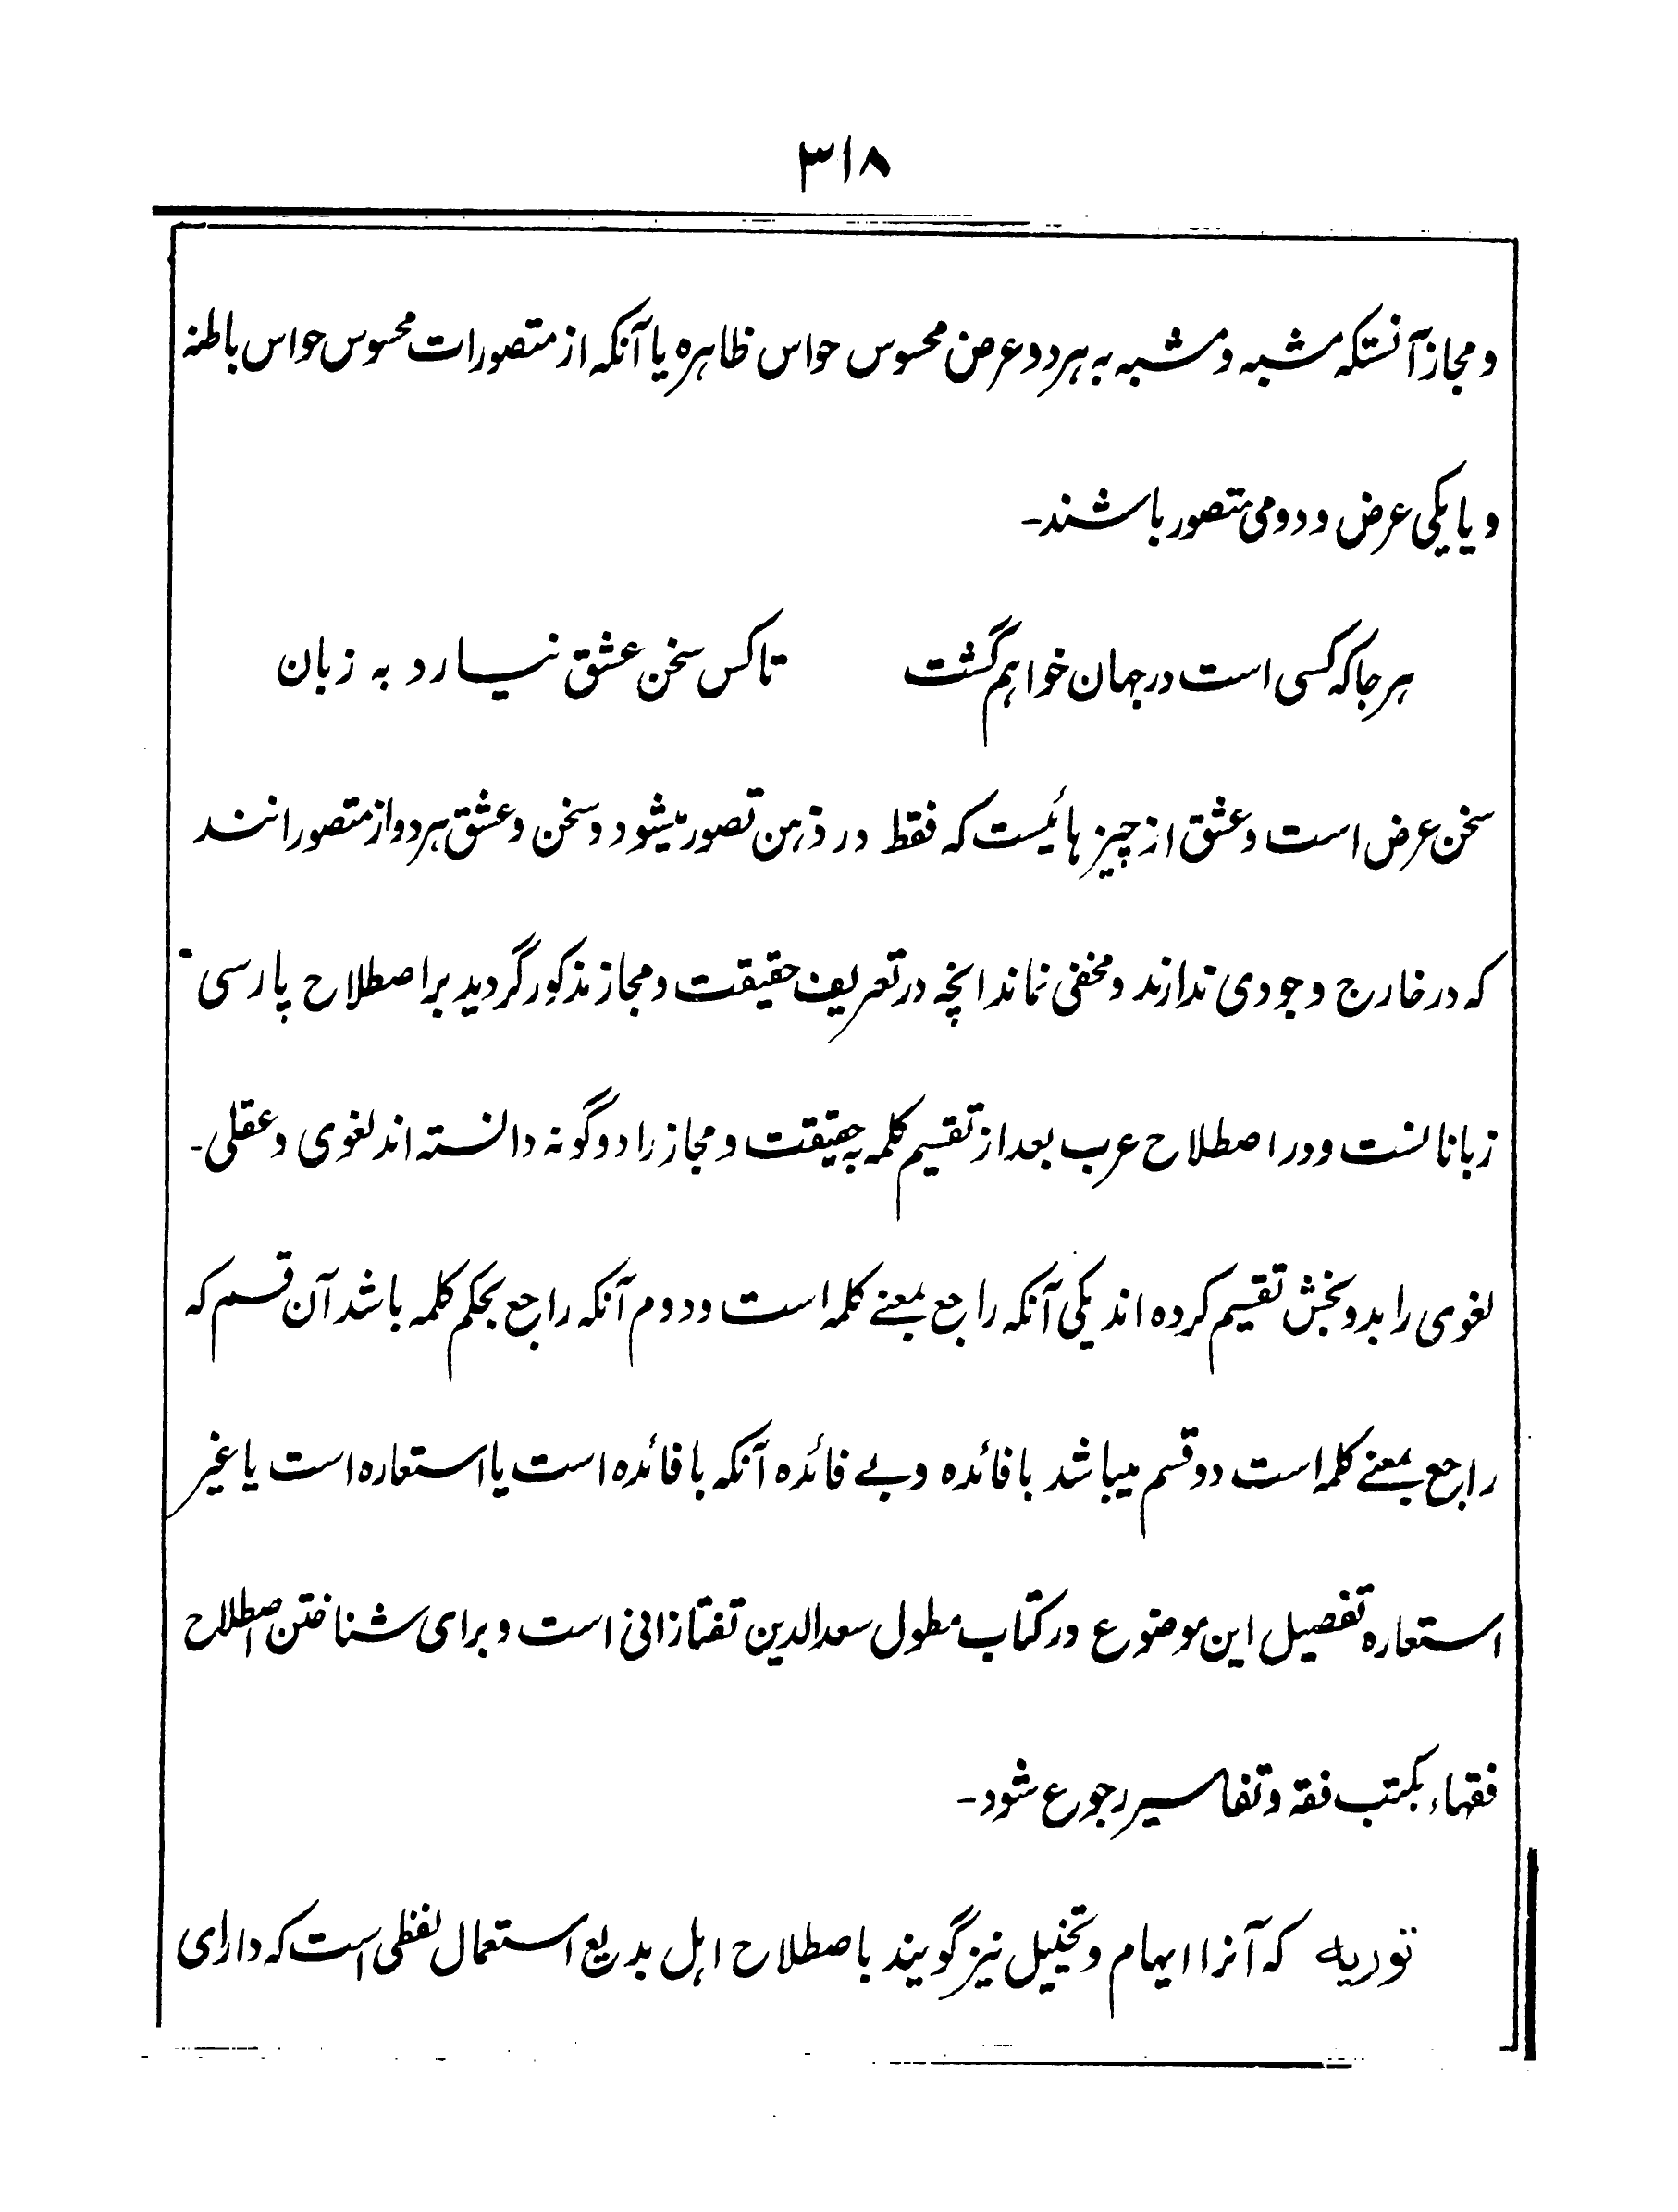 ۳۱۸
و مجاز آنستکه مشبه و مشبه به هر دو عرض محسوس حواس ظاهره یا آنکه از متصورات محسوس حواس باطنه
و یا یکی عرض و دومی متصور باشند-
هر جا که کسی است در جهان خواهم گشت تا کس سخن عشق نیارد به زبان
سخن عرض است و عشق از چیز هائیست که فقط در ذهن تصور میشود و سخن و عشق هر دو از متصورانند
که در خارج وجودی ندارند و مخفی نماند انچه در تعریف حقیقت و مجاز مذکور گردید بر اصطلاح پارسی
زبانانست و در اصطلاح عرب بعد از تقسیم کلمه بحقیقت و مجاز را دو گونه دانسته اند لغوی و عقلی-
لغوی را بدو بخش تقسیم کرده اند یکی آنکه راجع بمعنے کلمه است و دوم آنکه راجع بحکم کلمه باشد آن قسم که
راجع بمعنے کلمه است دو قسم میباشد با فائده و بے فائده آنکه با فائده است یا استعاره است یا غیر
استعاره تفصیل این موضوع در کتاب مطول سعدالدین تفتازانی است و برای شناختن اصطلاح
فقهاء بکتب فقه و تفاسیر رجوع شود-
توریه که آنرا ایهام و تخییل نیز گویند با صطلاح اهل بدیع استعمال لفظی است که دارای